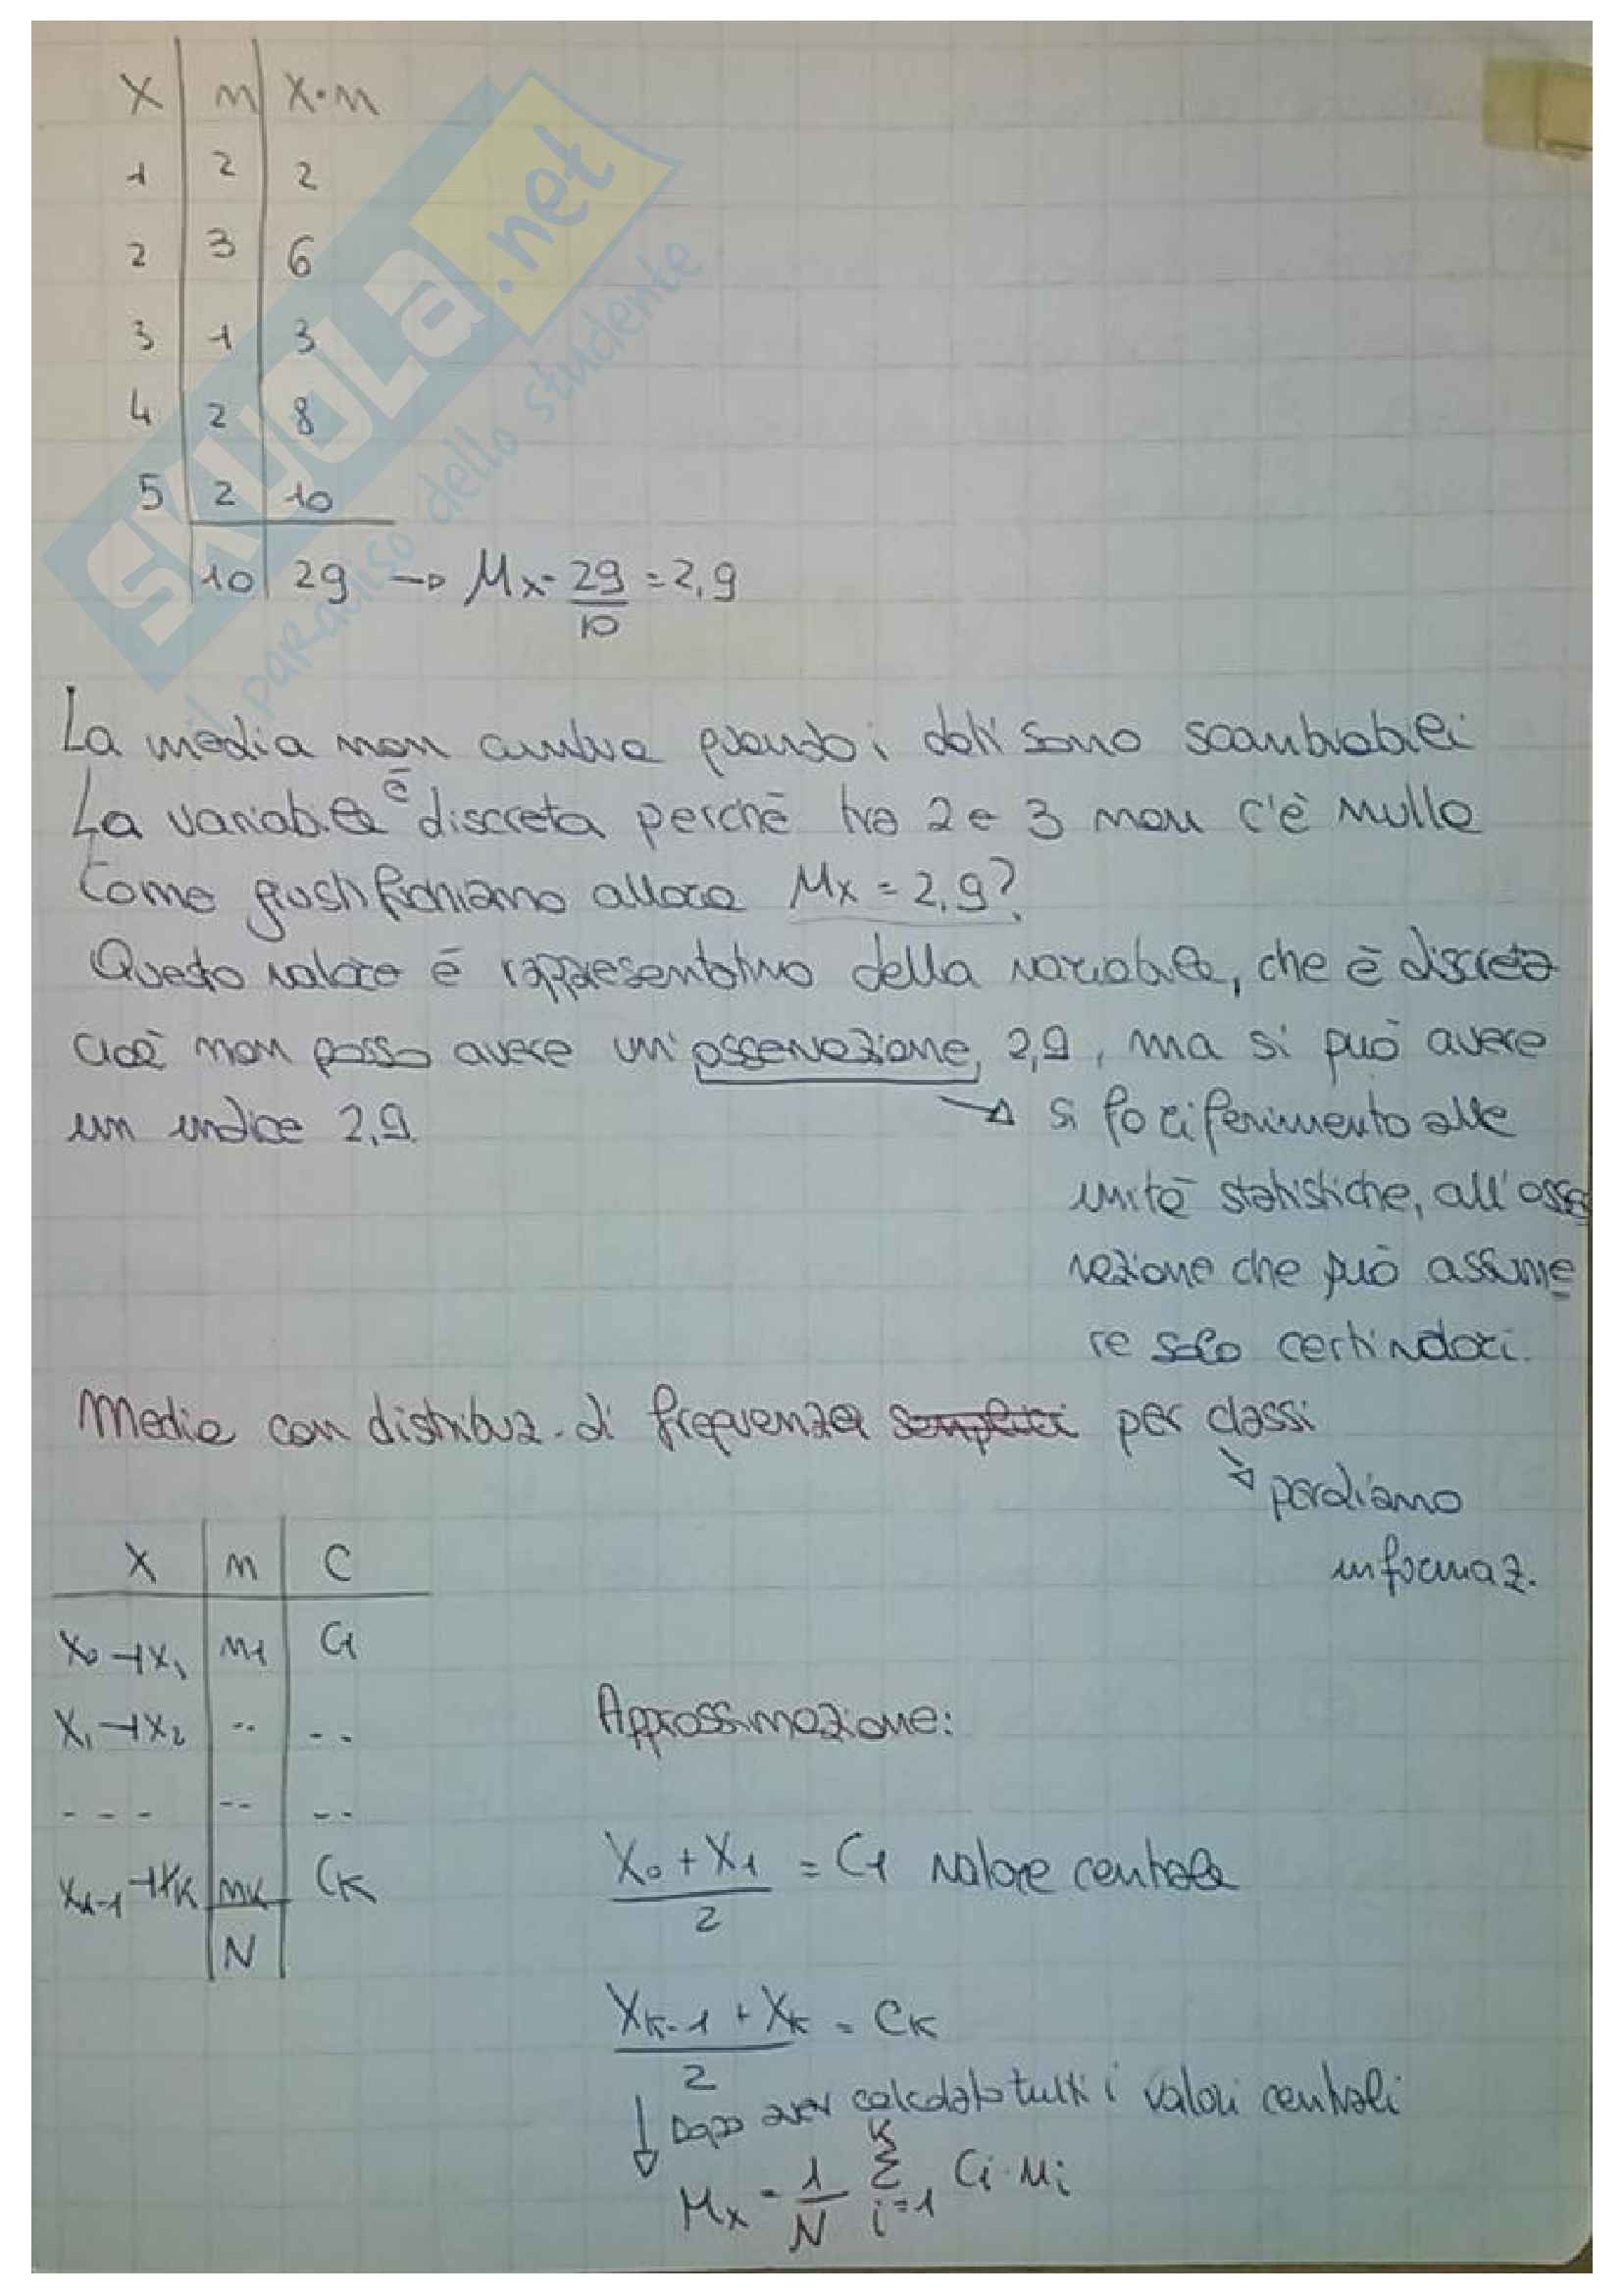 X n X·n
1 2 2
2 3 6
3 1 3
4 2 8
5 2 10
10 29 → μx = 29/10 = 2,9
La media non cambia quando i dati sono scambiabili
La variabile è discreta perchè tra 2 e 3 non c'è nulla
Come giustifichiamo allora μx = 2,9?
Questo valore è rappresentativo della variabile, che è discreta
cioè non posso avere un'osservazione 2,9, ma si può avere
un indice 2,9
→ si fa riferimento alle
unità statistiche, all'osser
vazione che può assume
re solo certi valori.
Media con distribuz. di frequenza semplici per classi
↘ perdiamo
informaz.
X n C
X₀ ⊣ X₁ n₁ C₁
X₁ ⊣ X₂ -- --
--- -- --
Xₖ₋₁ ⊣ Xₖ nₖ Cₖ
N
Approssimazione:
(X₀ + X₁)/2 = C₁ valore centrale
(Xₖ₋₁ + Xₖ)/2 = Cₖ
↓ Dopo aver calcolato tutti i valori centrali
μx = 1/N Σ K i=1 Ci · ni
SKUOLA.net
il paradiso dello studente